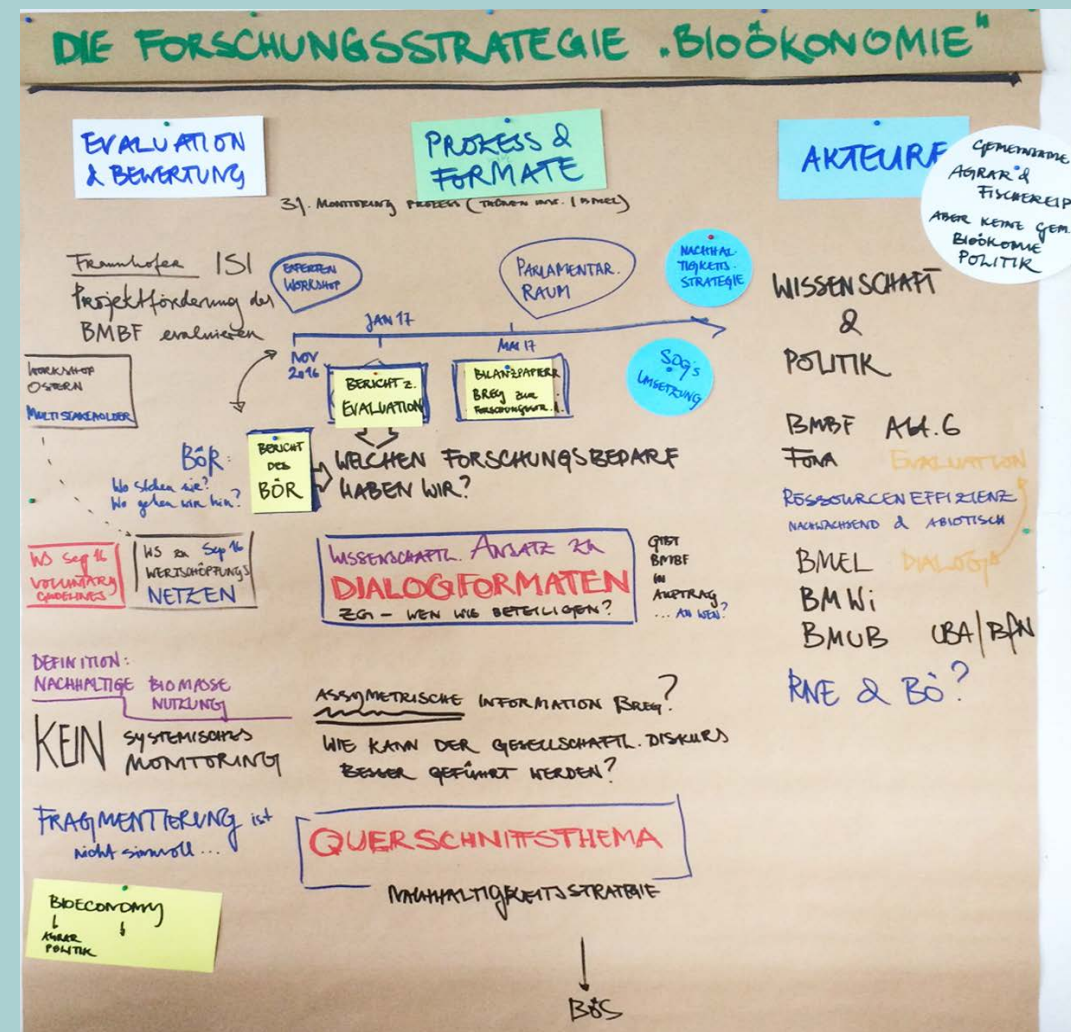 DIE FORSCHUNGSSTRATEGIE „BIOÖKONOMIE"
EVALUATION
& BEWERTUNG
Fraunhofer ISI
Projektförderung des
BMBF evaluieren
WORKSHOP
OSTERN
MULTISTAKEHOLDER
BÖR:
Wo stehen sie?
Wo gehen wir hin?
WS Sep 16
VOLUNTARY
GUIDELINES
WS zu Sep 16
WERTSCHÖPFUNGS
NETZEN
DEFINITION:
NACHHALTIGE BIOMASSE
NUTZUNG
KEIN SYSTEMISCHES
MONITORING
FRAGMENTIERUNG ist
nicht sinnvoll...
BIOECONOMY
AGRAR
POLITIK
PROZESS &
FORMATE
31. MONITORING PROZESS (THÜNEN INST. / BMEL)
EXPERTEN
WORKSHOP
PARLAMENTAR.
RAUM
NACHHAL-
TIGKEITS-
STRATEGIE
JAN 17
MAI 17
NOV
2016
BERICHT Z.
EVALUATION
BILANZPAPIER
BREG ZUR
SDG's
UMSETZUNG
BERICHT
DES
BÖR
WELCHEN FORSCHUNGSBEDARF
HABEN WIR?
WISSENSCHAFTL. ANSATZ ZU
DIALOGFORMATEN
ZG – WEN WIE BETEILIGEN?
GIBT
BMBF
IN
AUFTRAG
... AN WEN?
ASSYMETRISCHE INFORMATION BREG?
WIE KANN DER GESELLSCHAFTL. DISKURS
BESSER GEFÜHRT WERDEN?
QUERSCHNITTSTHEMA
NACHHALTIGKEITSSTRATEGIE
BÖS
AKTEURE
GEMEINSAME
AGRAR &
FISCHEREIP
ABER KEINE GEM.
BIOÖKOMIE
POLITIK
WISSENSCHAFT
&
POLITIK
BMBF Abt. 6
FONA EVALUATION
RESSOURCENEFFIZIENZ
NACHWACHSEND & ABIOTISCH
BMEL DIALOG
BMWi
BMUB UBA/BfN
RNE & BÖ?